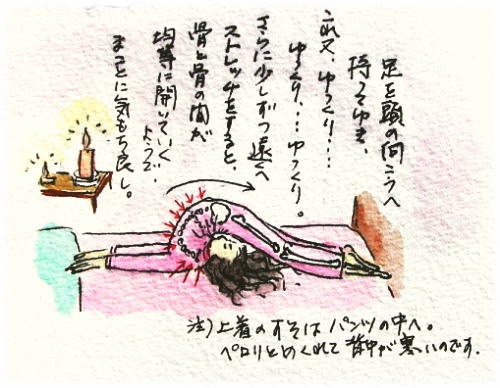 足を頭の向こうへ
持ってゆき、
これ又、ゆっくり・・・・
ゆっくり、・・・ゆっくり。
さらに少しずつ遠くへ
ストレッチをすると、
骨と骨の間が
均等に開いていく
ようで、
まことに気もち良し。
注）上着のすそはパンツの中へ。
ペロリとめくれて背中が寒いのです.